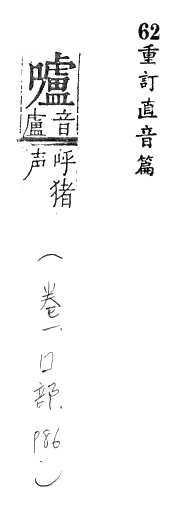 62重訂直音篇
嚧
音盧
呼猪声
(卷一 口部. P86.)